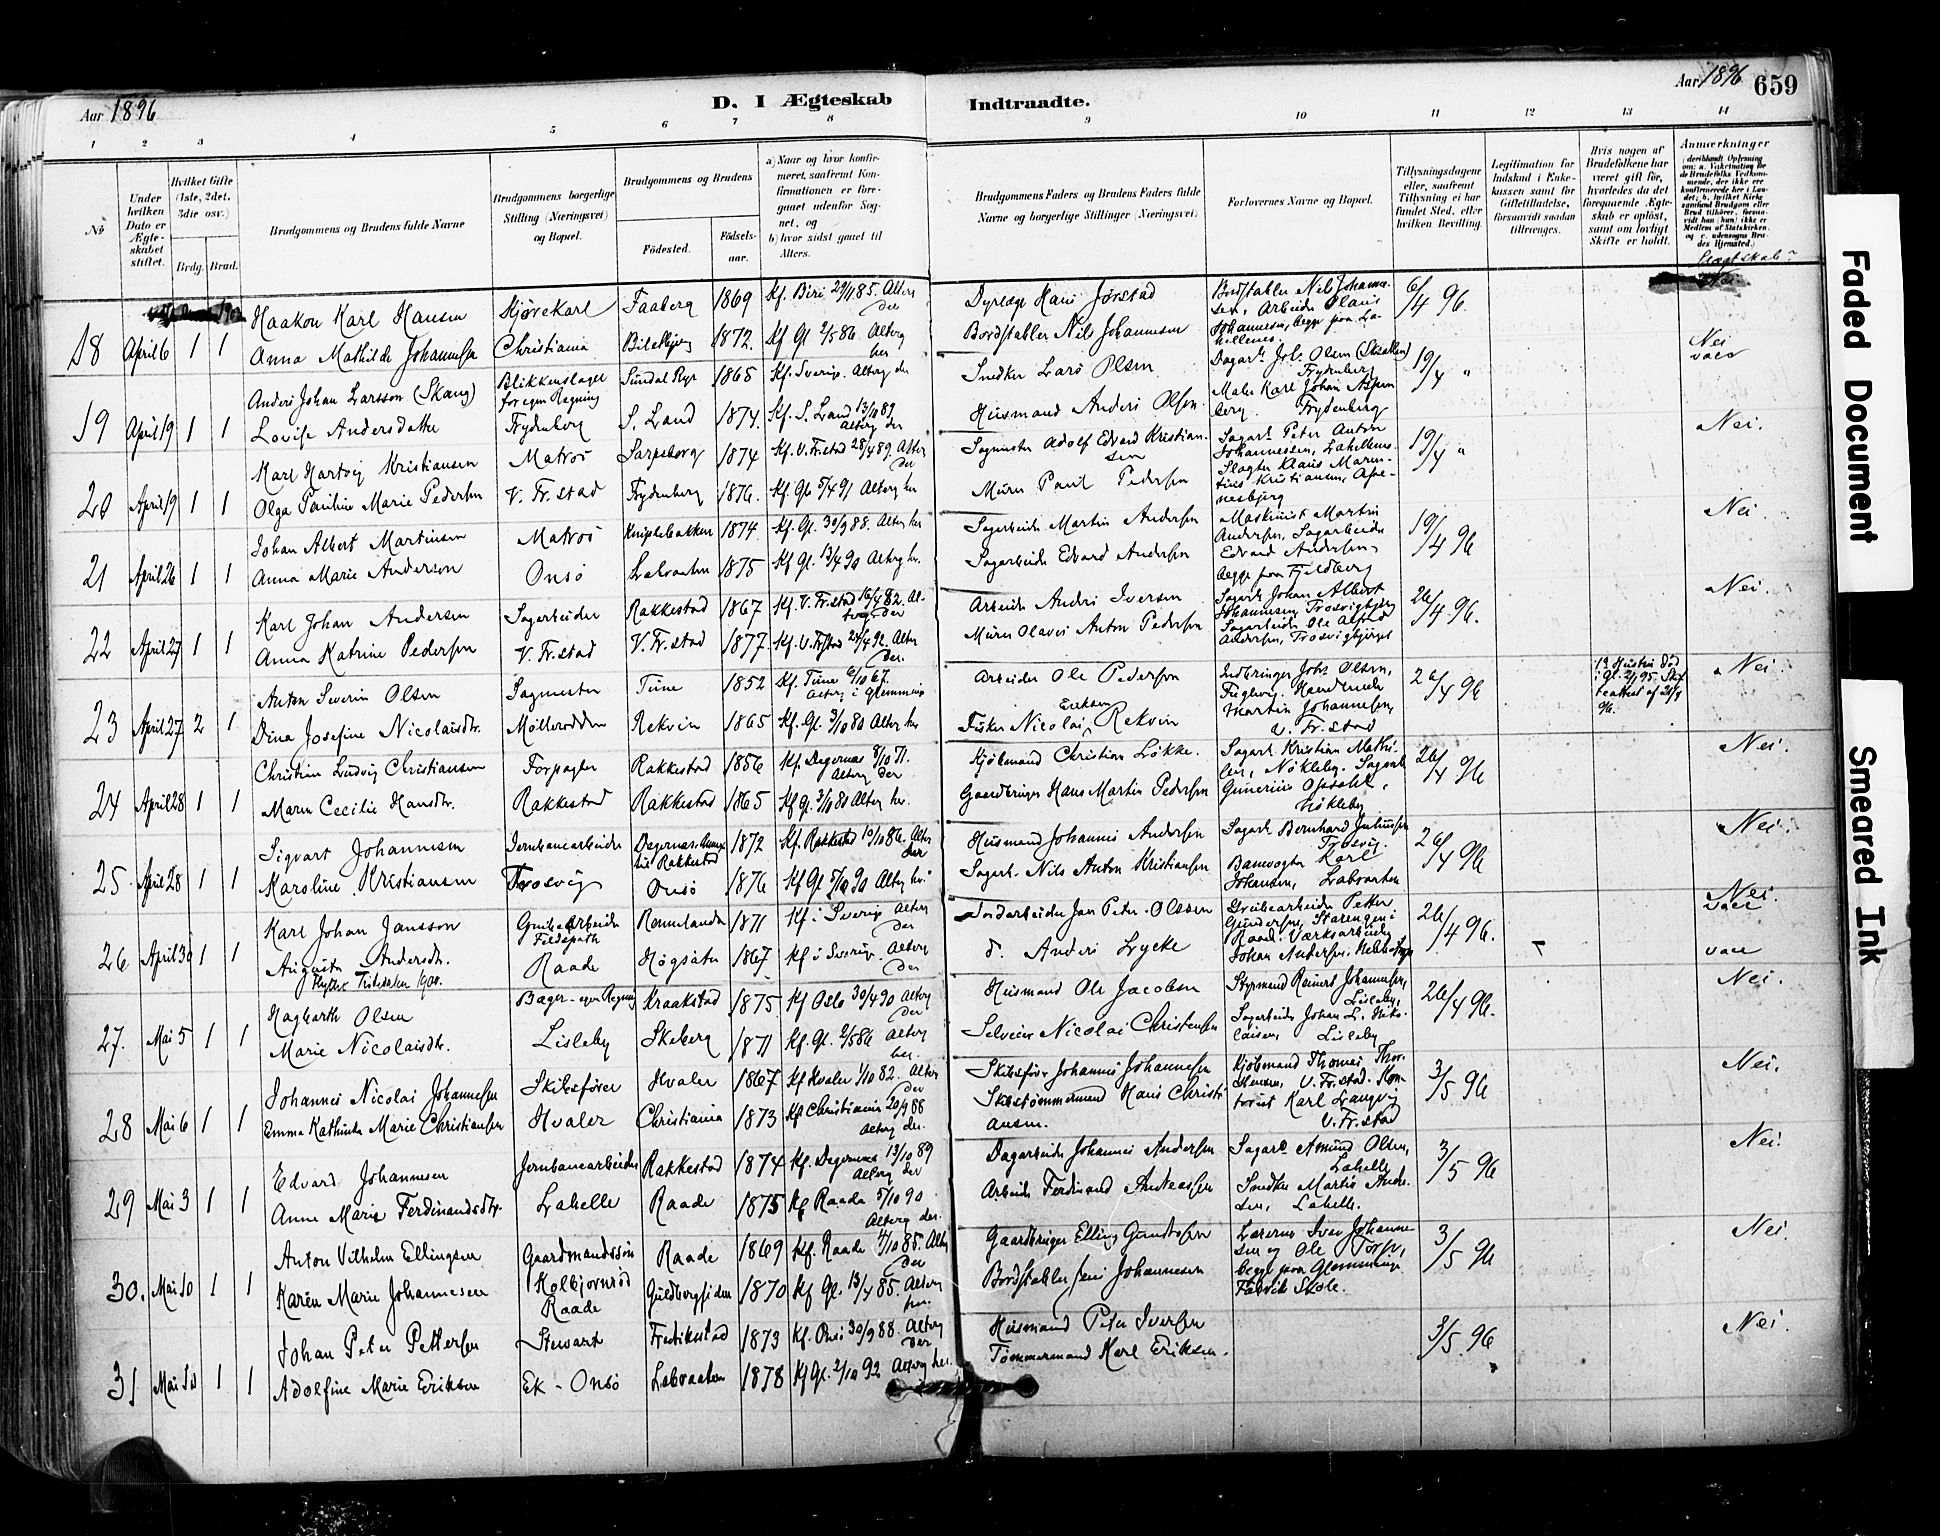 Aar 1896
D. I Ægteskab Indtraadte.
Aar 1896 659
1 2 3 4 5 6 7 8 9 10 11 12 13 14
No
Under hvilken Dato er Ægteskabet stiftet.
Hvilket Gifte (1ste, 2det, 3die osv.)
Brdg. Brud.
Brudgommens og Brudens fulde Navne
Brudgommens borgerlige Stilling (Næringsvei) og Bopæl.
Brudgommens og Brudens
Födested.
Födselsaar.
a) Naar og hvor konfirmeret, saafremt Konfirmationen er foregaaet udenfor Sognet, og
b) hvor sidst gaaet til Alters.
Brudgommens Faders og Brudens Faders fulde Navne og borgerlige Stillinger (Næringsvei)
Forlovernes Navne og Bopæl.
Tillysningsdagene eller, saafremt Tillysning ei har fundet Sted, efter hvilken Bevilling.
Legitimation for Indskud i Enkekassen samt for Giftetilladelse, forsaavidt saadan tiltrænges.
Hvis nogen af Brudefolkene har været gift för, hvorledes da det foregaaende Ægteskab er oplöst, samt om lovligt Skifte er holdt.
Anmærkninger
Slægtskab
18 April 6 1 1
Haakon Karl Hansen Kjørekarl Faaberg 1869 Kf. Biri 29/11 85. Alterg der Dyrlæge Hans Jørstad Bordstabler Nils Johannesen, Arbeider Olaus Johannesen, begge paa Lahellene 6/4 96.
Anna Mathilde Johannesen Christiania 1872. Kf Gl 2/5 86 Alterg her Bordstabler Nils Johannesen
Nei
19 April 19 1 1
Anders Johan Larsson (Skaug) Blikkenslager for egen Regning 1865 Kf. Sverige. Alterg der Snedker Lars Olsen Frydenberg 19/4 "
Lovise Andersdatter Frydenberg S. Land 1874. Kf. S. Land 13/10 89. Alterg der Husmand Anders Olsen Maler Karl Johan Aspenberg. Frydenberg
Nei.
20 April 19 1 1
Karl Hartvig Kristiansen Matros Sarpsborg 1874 Kf. V. Fr.stad 28/4 89. Alterg der Sagmester Adolf Edvard Kristiansen Sagarb. Peter Anton Johannessen, Lahellens 19/4 "
Olga Pauline Marie Pedersen V. Fr.stad Frydenberg 1876. Kf. Gl 5/4 91 Alterg her Murer Paul Pedersen Slagter Klaus Marentius Kristiansen,
Nei
21 April 26 1 1
Johan Albert Martinsen Matros Kniplebakken 1874 Kf. Gl. 30/9 88. Alterg her Sagarbeider Martin Andersen Maskinist Martin Andersen, Sagarbeider 19/4 96
Anna Marie Andersen Onsö Labraaten 1875 Kf. Gl. 13/4 90 Alterg her. Sagarbeider Edvard Andersen Edvard Andersen, begge paa Fjeldberg
Nei.
22 April 27 1 1
Karl Johan Andersen Sagarbeider Rakkestad 1867 Kf. V. Fr.stad 16/4 82. Alterg der Arbeider Anders Iversen Sagarb. Johan Albert Johannesen, Trosvigbjerg 26/4 96.
Anna Katrine Pedersen V. Fr.stad V. Fr.stad 1877. Kf. V. Fr.stad 24/4 92. Alterg der. Murer Olaves Anton Pedersen Sagarbeider Ole Alfred Andersen, Trosvigbjerget
Nei
23 April 27 2 1
Anton Severin Olsen Sagmester Tune 1852 Kf. Tune 6/10 67. Alterg i Glemminge Arbeider Ole Pedersen Indbringer Johs Olsen, 26/4 96
Dina Josefine Nicolaisdtr. Mølleodden Rekvin 1865 Kf. Gl. 3/10 80 Alterg her Fisker Nicolai Eriksen Rekvin Martin Johannesen, V. Fr.stad
Nei.
24 April 28 1 1
Christian Ludvig Christiansen Forpagter Rakkestad 1856 Kf. Degernæs 8/10 71. Alterg der Kjöbmand Christian Løkke. Sagarb. Kristian Mathisen, Nökleby. Sagarb. 26/4 96
Maren Cecilie Hansdtr. Rakkestad Rakkestad 1865 Kf Gl. 3/10 80 Alterg her. Gaardbruger Hans Martin Pedersen Gunerius Opsahl, Nökleby
Nei.
25 April 28 1 1
Sigvart Johannesen Jernbanearbeider Degernæs Annex til Rakkestad 1872 Kf. Rakkestad 10/10 86. Alterg der Husmand Johannes Andersen Sagarb. Bernhard Juliussen Trosvig. 26/4 96
Karoline Kristiansen Trosvig Onsö 1876 Kf Gl. 5/10 90 Alterg her. Sagarb. Nils Anton Kristiansen Banevogter Karl Johansen, Labraaten
Nei.
26 April 30 1 1
Karl Johan Jansson Grubearbeider Feldspath 1871 Kf. i Sverige Alterg der Jordarbeider Jan Peter Olsson Grubearbeider Petter Gundersen, 26/4 96.
Augusta Andersdtr. Raade Högsäter 1867 Kf i Sverige. Alterg der d. Anders Lycke Raade. Værksarbeider Johan Andersen,
1900.
27. Mai 5 1 1
Hagbarth Olsen Bager - egen Regning Kraakstad 1875 Kf Oslo 30/4 90 Alterg der Husmand Ole Jacobsen Styrmand Reinert Johannesen, Lisleby, 26/4 96.
Marie Nicolaisdtr. Lisleby Skeberg 1871 Kf. Gl. 2/5 86 Alterg her. Selveier Nicolai Christensen Sagarbeider Johan L. Nikolaisen, Lisleby
Nei.
28 Mai 6 1 1
Johannes Nicolai Johannesen Skibsfører Hvaler 1867 Kf Hvaler 1/10 82. Alterg der Skibsfører Johannes Johannesen Kjöbmand Thomas Thorstensen, V. Fr.stad. Kontorist Karl Langvig V. Fr.stad 3/5 96
Emma Kathinka Marie Christiansen Hvaler Christiania 1873 Kf Christiania 20/9 88 Alterg der. Skibstømmermand Hans Christiansen.
Nei.
29 Mai 3 1 1
Edvard Johannesen Jernbanearbeider Rakkestad 1874 Kf. Degernæs 13/10 89 Alterg der Dagarbeider Johannes Andersen Sagarb. Amund Olsen, Lahelle 3/5 96
Anne Marie Ferdinandsdtr. Lahelle Raade 1875 Kf Raade 5/10 90 Alterg der. Arbeider Ferdinand Andreassen Snedker Martin Andersen, Lahelle.
Nei.
30. Mai 10 1 1
Anton Vilhelm Ellingsen Gaardmandssön Raade 1869 Kf. Raade 4/10 85. Alterg der Gaardbruger Elling Gundersen Lærerne Iver Johannesen og Ole Torp, 3/5 96
Karen Marie Johannesen Kolbjørnrød Raade Guldbergsiden 1870 Kf Gl. 13/4 85. Alterg her. Bordstabler Jens Johannesen begge paa Glemminge Fabrik Skole.
Nei.
31 Mai 10 1 1
Johan Peter Pettersen Stewart Fredrikstad 1873 Kf. Onsö 30/9 88. Alterg der Husmand Peter Iversen 3/5 96
Adolfine Marie Eriksen Ek - Onsö Labraaten 1878 Kf Gl. 2/10 92 Alterg her. Tømmermand Karl Eriksen.
Nei.
Faded Document
Smeared Ink